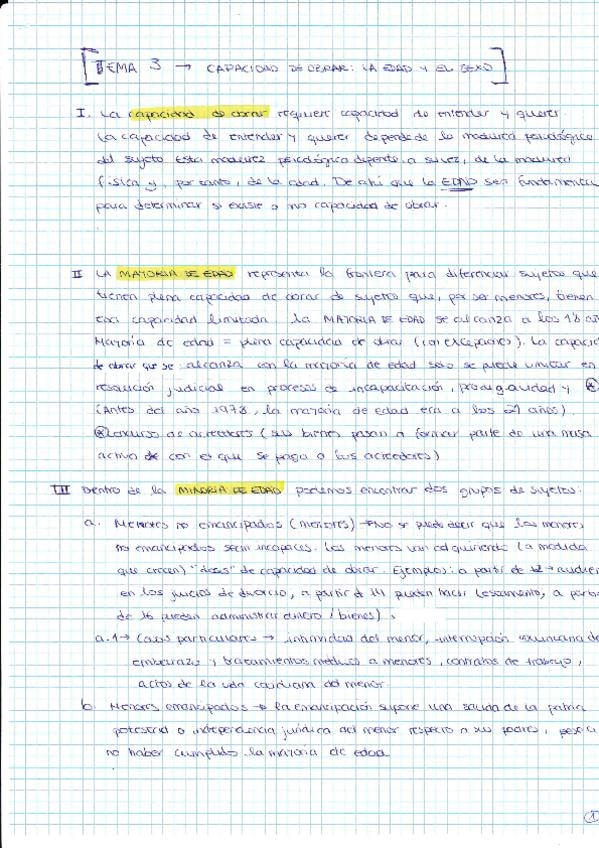 [TEMA 3 → CAPACIDAD DE OBRAR: LA EDAD Y EL SEXO]
I. La capacidad de obrar requiere capacidad de entender y querer.
La capacidad de entender y querer depende de la madurez psicológica
del sujeto. Esta madurez psicológica depende, a su vez, de la madurez
física y, por tanto, de la edad. De ahí que la EDAD sea fundamental
para determinar si existe o no capacidad de obrar.
II LA MAYORIA DE EDAD representa la frontera para diferenciar sujetos que
tienen plena capacidad de obrar de sujetos que, por ser menores, tienen
esa capacidad limitada. La MAYORIA DE EDAD se alcanza a los 18 añ
Mayoría de edad = plena capacidad de obrar (con excepciones). La capacid
de obrar que se alcanza con la mayoría de edad solo se puede limitar en
resolución judicial en procesos de incapacitación, prodigalidad y *
(Antes del año 1978, la mayoría de edad era a los 21 años).
*Concurso de acreedores (sus bienes pasan a formar parte de una masa
activa con el que se paga a los acreedores)
III Dentro de la MINORIA DE EDAD podemos encontrar dos grupos de sujetos:
a. Menores no emancipados (menores) → No se puede decir que los menores
no emancipados sean incapaces. Los menores van adquiriendo (a medida
que crecen) "dosis" de capacidad de obrar. Ejemplos: a partir de 12 → audien
en los juicios de divorcio, a partir de 14 pueden hacer testamento, a parti
de 16 pueden administrar dinero / bienes).
a.1 → Casos particulares → intimidad del menor, interrupción voluntaria de
embarazo y tratamientos médicos a menores, contratos de trabajo,
actos de la vida cotidiana del menor.
b. Menores emancipados → la emancipación supone una salida de la patria
potestad o independencia jurídica del menor respecto a sus padres, pese a
no haber cumplido la mayoría de edad.
1